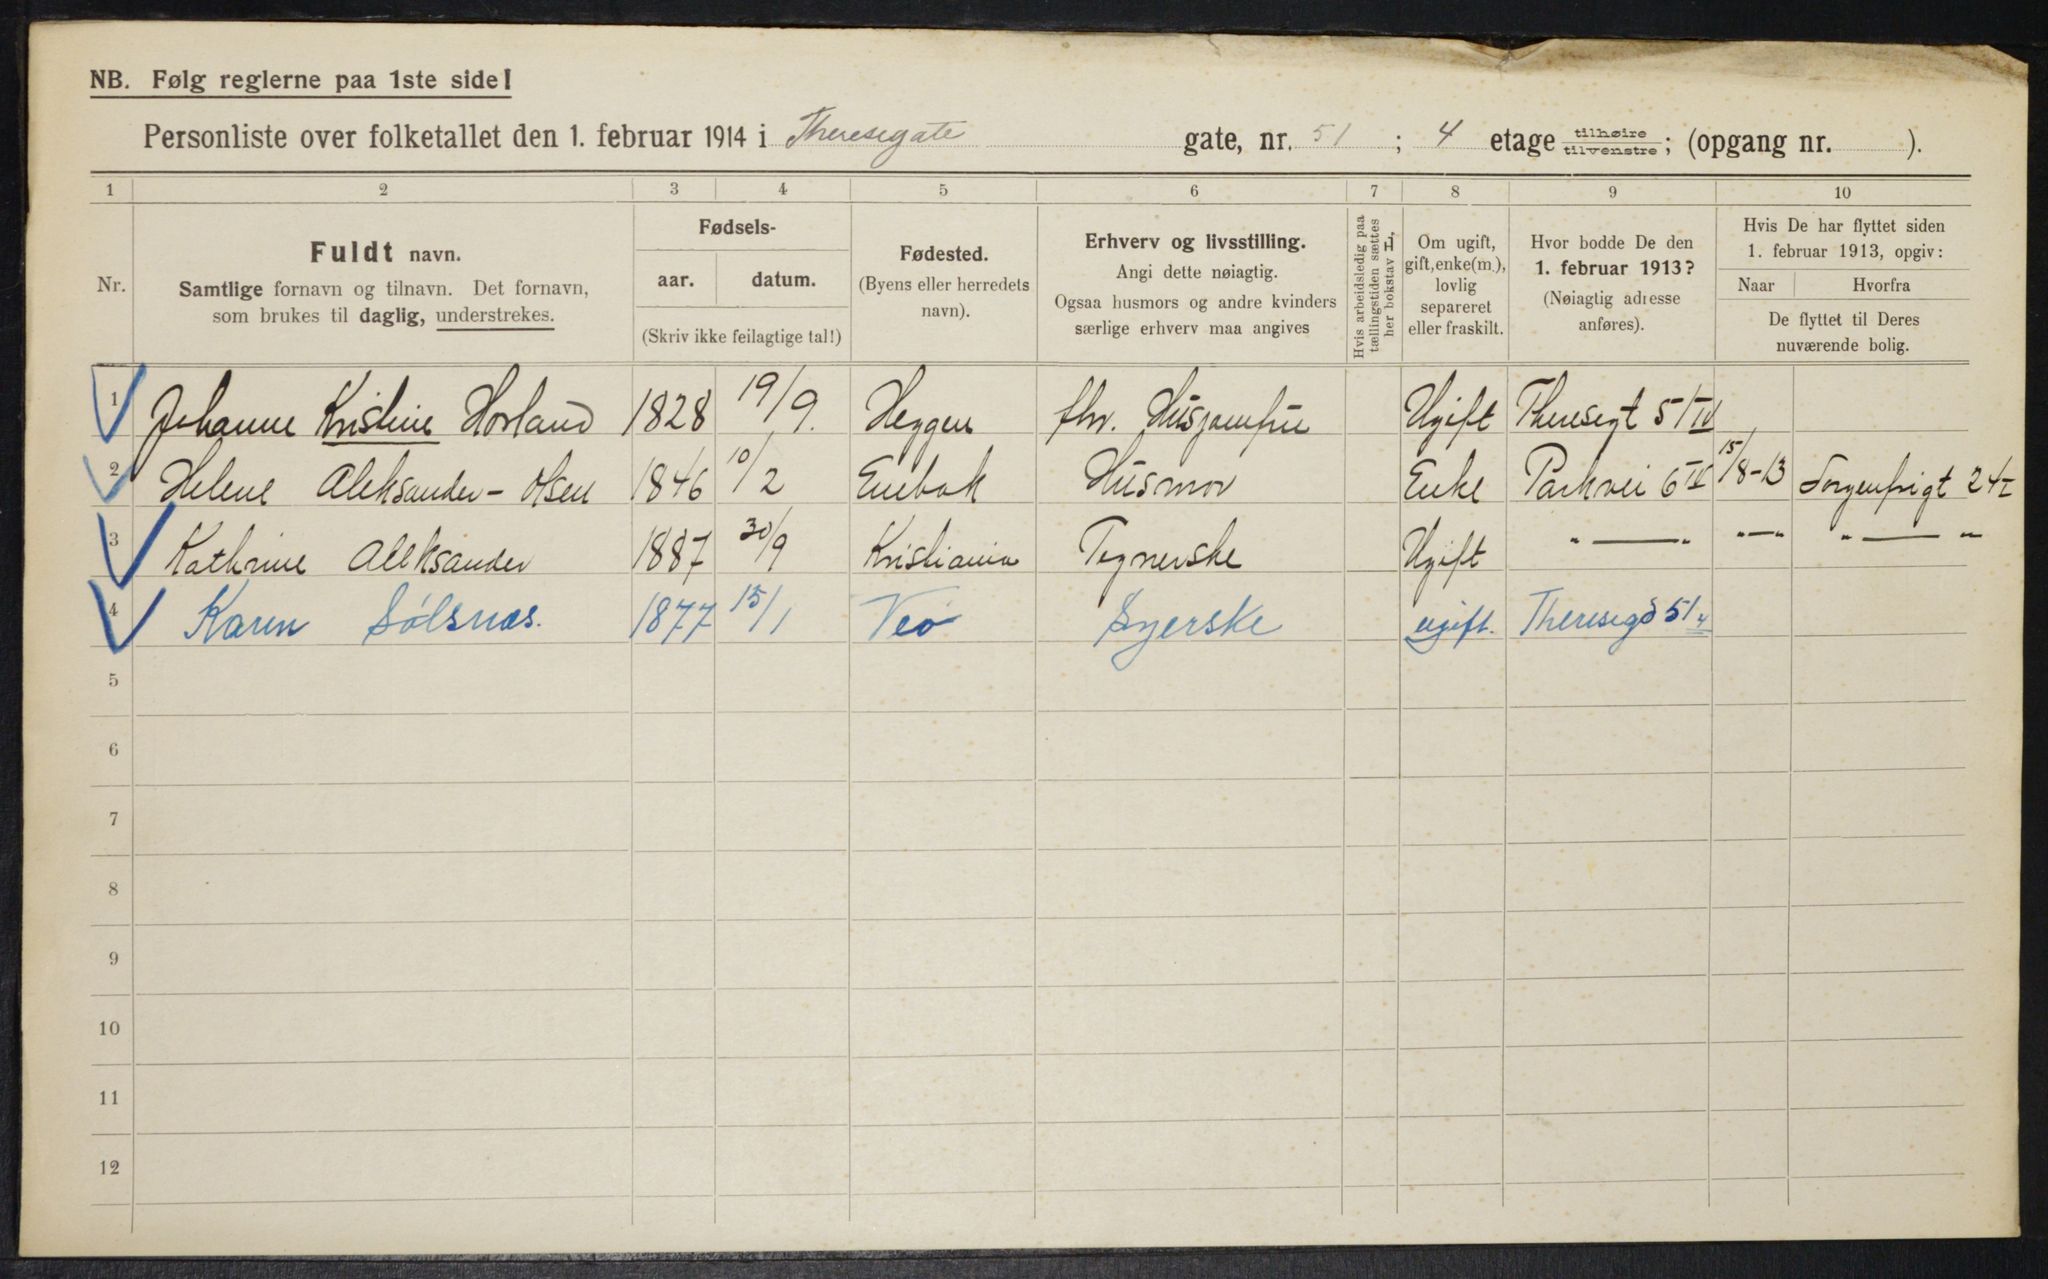 NB. Følg reglerne paa 1ste side!
Personliste over folketallet den 1. februar 1914 i Theresegate gate, nr. 51 ; 4 etage tilhøire tilvenstre ; (opgang nr. ).
1 2 3 4 5 6 7 8 9 10
Nr.
Fuldt navn.
Samtlige fornavn og tilnavn. Det fornavn,
som brukes til daglig, understrekes.
Fødsels-
aar. datum.
(Skriv ikke feilagtige tal!)
Fødested.
(Byens eller herredets
navn).
Erhverv og livsstilling.
Angi dette nøiagtig.
Ogsaa husmors og andre kvinders
særlige erhverv maa angives
Hvis arbeidsledig paa
tællingstiden sættes
her bokstav L.
Om ugift,
gift, enke(m.),
lovlig
separeret
eller fraskilt.
Hvor bodde De den
1. februar 1913?
(Nøiagtig adresse
anføres).
Hvis De har flyttet siden
1. februar 1913, opgiv:
Naar Hvorfra
De flyttet til Deres
nuværende bolig.
1 Johanne Kristine Horland 1828 19/9. Heggen fhv. Husjomfru Ugift Theresegt 51 IV
2 Helene Aleksander-Olsen 1846 10/2 Enebak Husmor Enke Parkvei 6 IV 15/8-13 Sorgenfrigt 24 I
3 Kathrine Aleksander 1887 30/9 Kristiania Tegnerske Ugift " — " " — " " — "
4 Karen Sölsnæs. 1877 15/1 Veö Syerske ugift. Theresegd 51 4
5
6
7
8
9
10
11
12